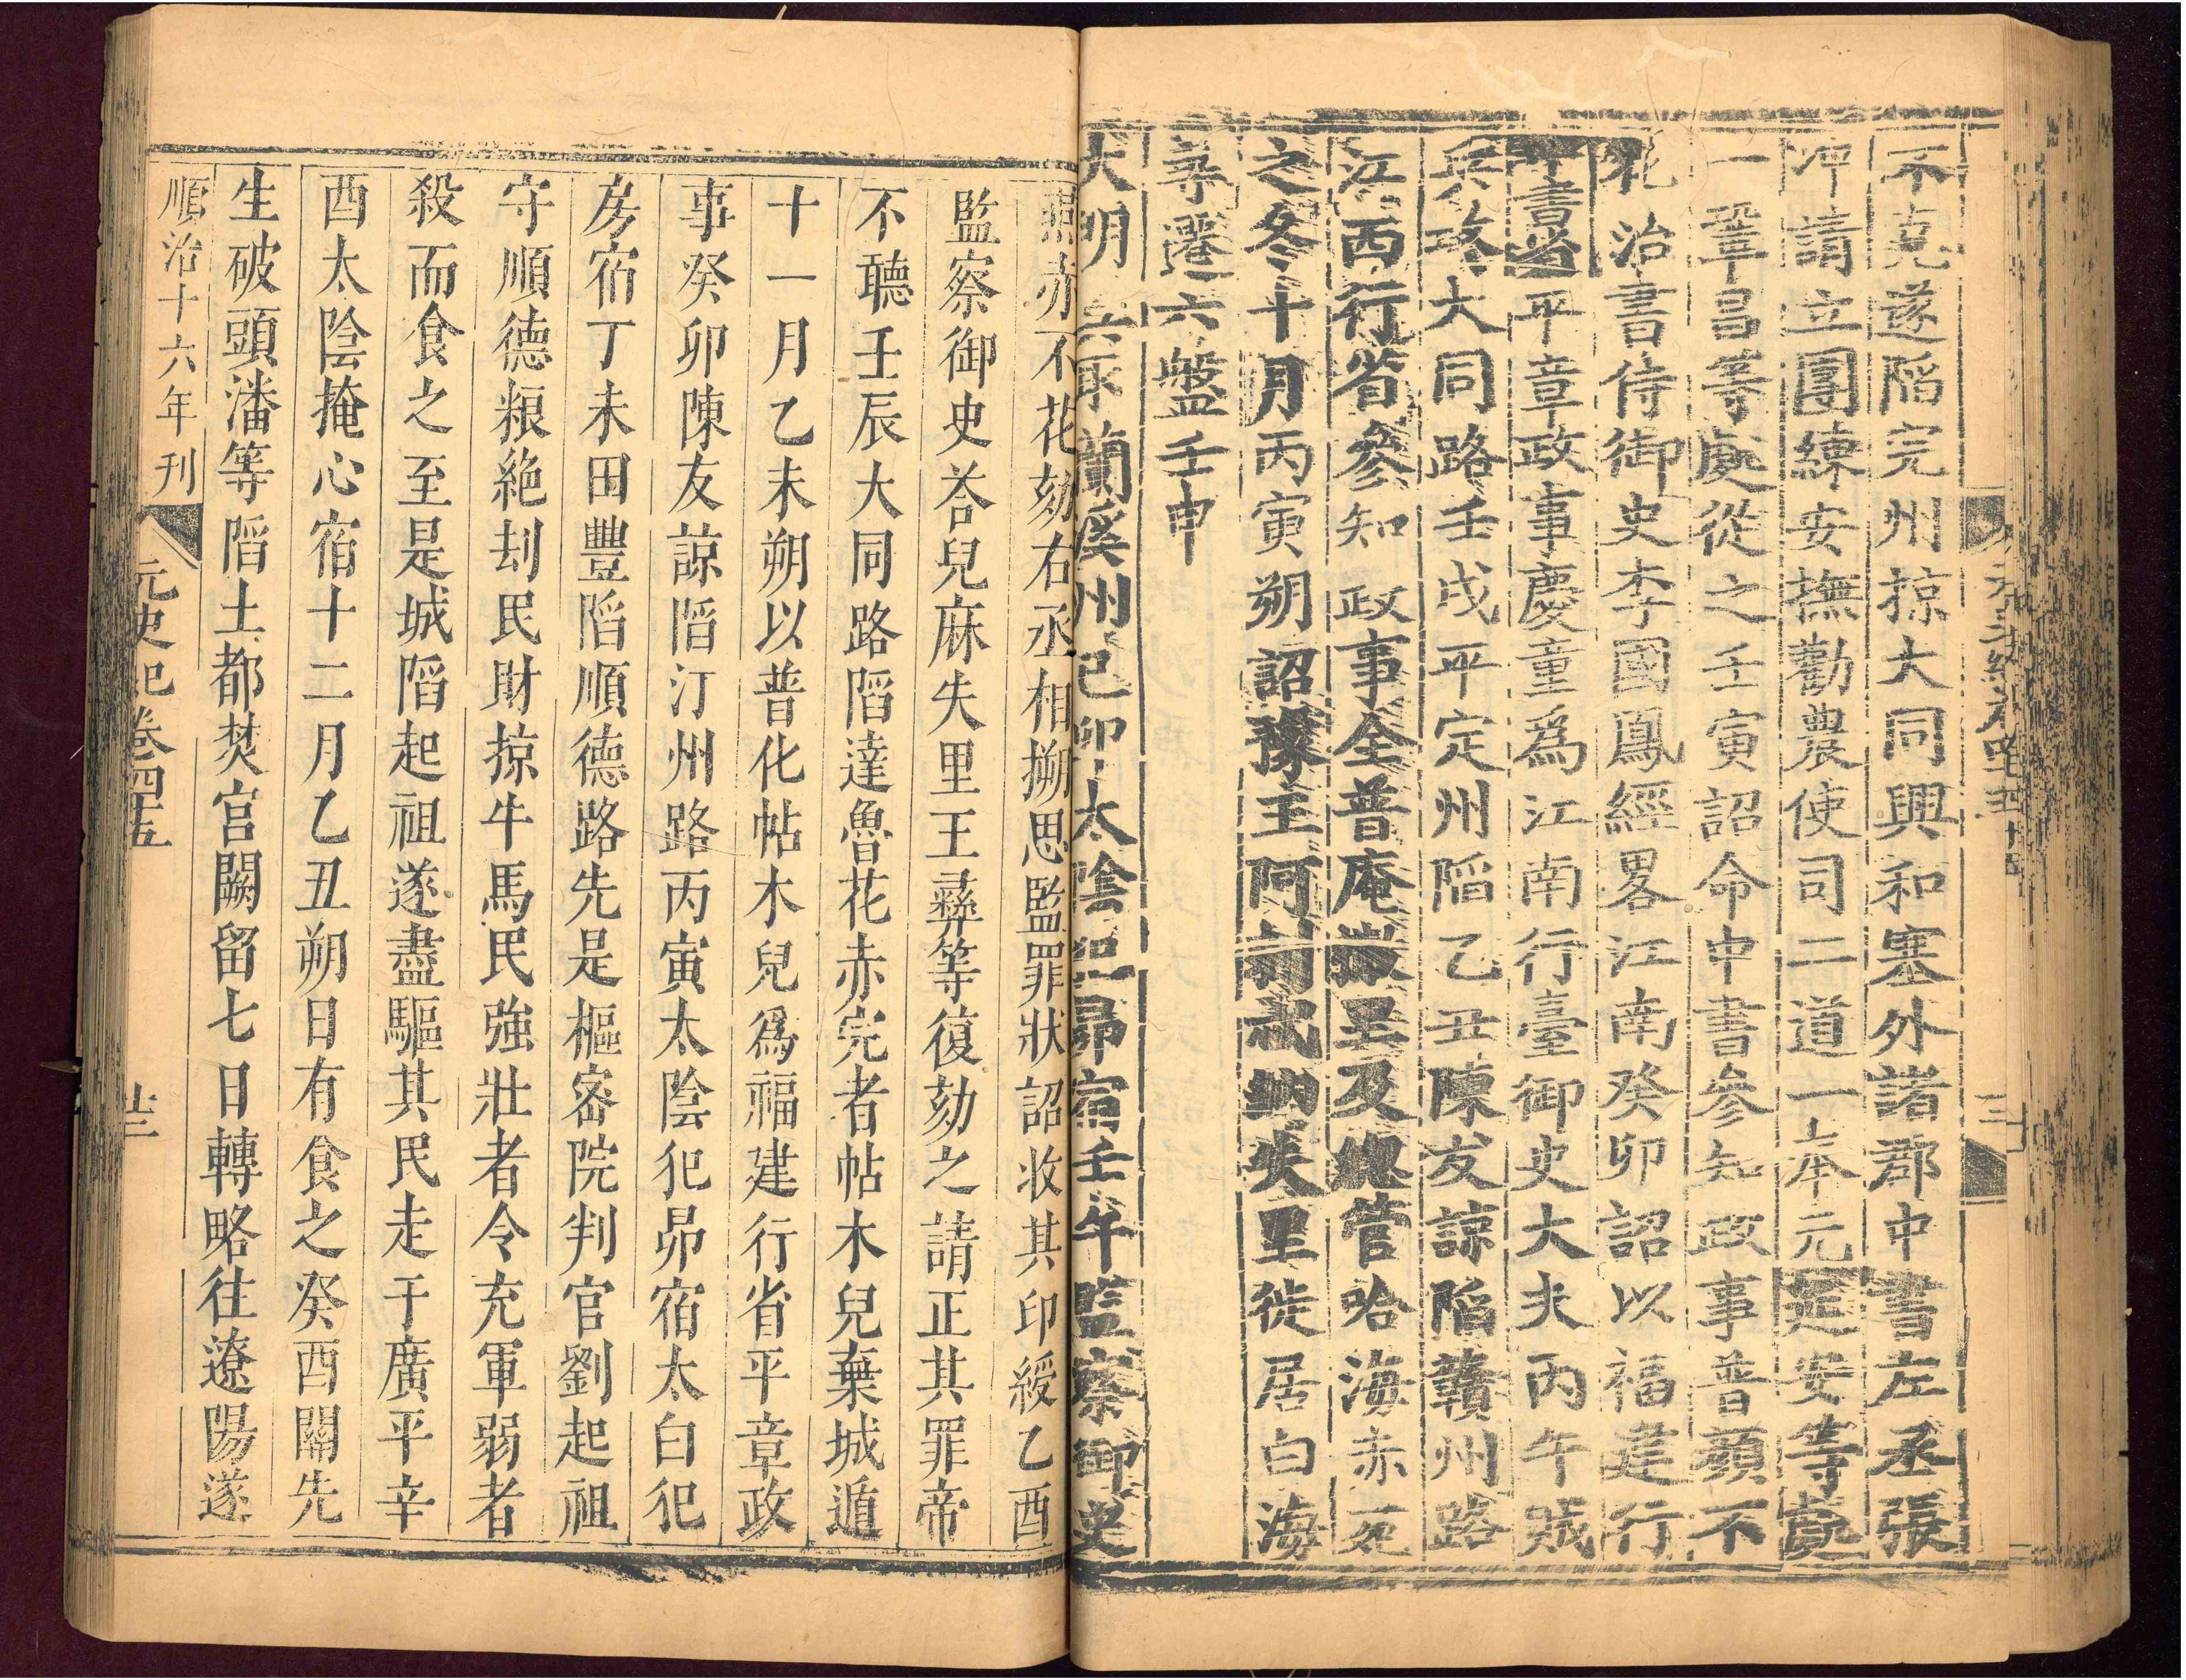 不克遂陷完州掠大同興和塞外諸郡中書左丞張
冲請立團練安撫勸農使司二道一奉元延安等處
一鞏昌等處從之壬寅詔命中書參知政事普顏不
花治書侍御史李國鳳經畧江南癸卯詔以福建行
中書省平章政事慶童爲江南行臺御史大夫丙午賊
兵攻大同路壬戌平定州陷乙丑陳友諒陷贛州路
江西行省參知政事全普庵撒里及總管哈海赤死
之冬十月丙寅朔詔豫王阿剌忒納失里徙居白海
尋遷六盤壬申
大明兵取蘭溪州己卯太陰犯昴宿壬午監察御史
燕赤不花劾右丞相搠思監罪狀詔收其印綬乙酉
監察御史荅兒麻失里王彝等復劾之請正其罪帝
不聽壬辰大同路陷達魯花赤完者帖木兒棄城遁
十一月乙未朔以普化帖木兒爲福建行省平章政
事癸卯陳友諒陷汀州路丙寅太陰犯昴宿太白犯
房宿丁未田豐陷順德路先是樞密院判官劉起祖
守順德粮絶刦民財掠牛馬民強壯者令充軍弱者
殺而食之至是城陷起祖遂盡驅其民走于廣平辛
酉太陰掩心宿十二月乙丑朔日有食之癸酉關先
生破頭潘等陷上都焚宮闕留七日轉略往遼陽遂
順治十六年刊
元史紀卷四五
廿三